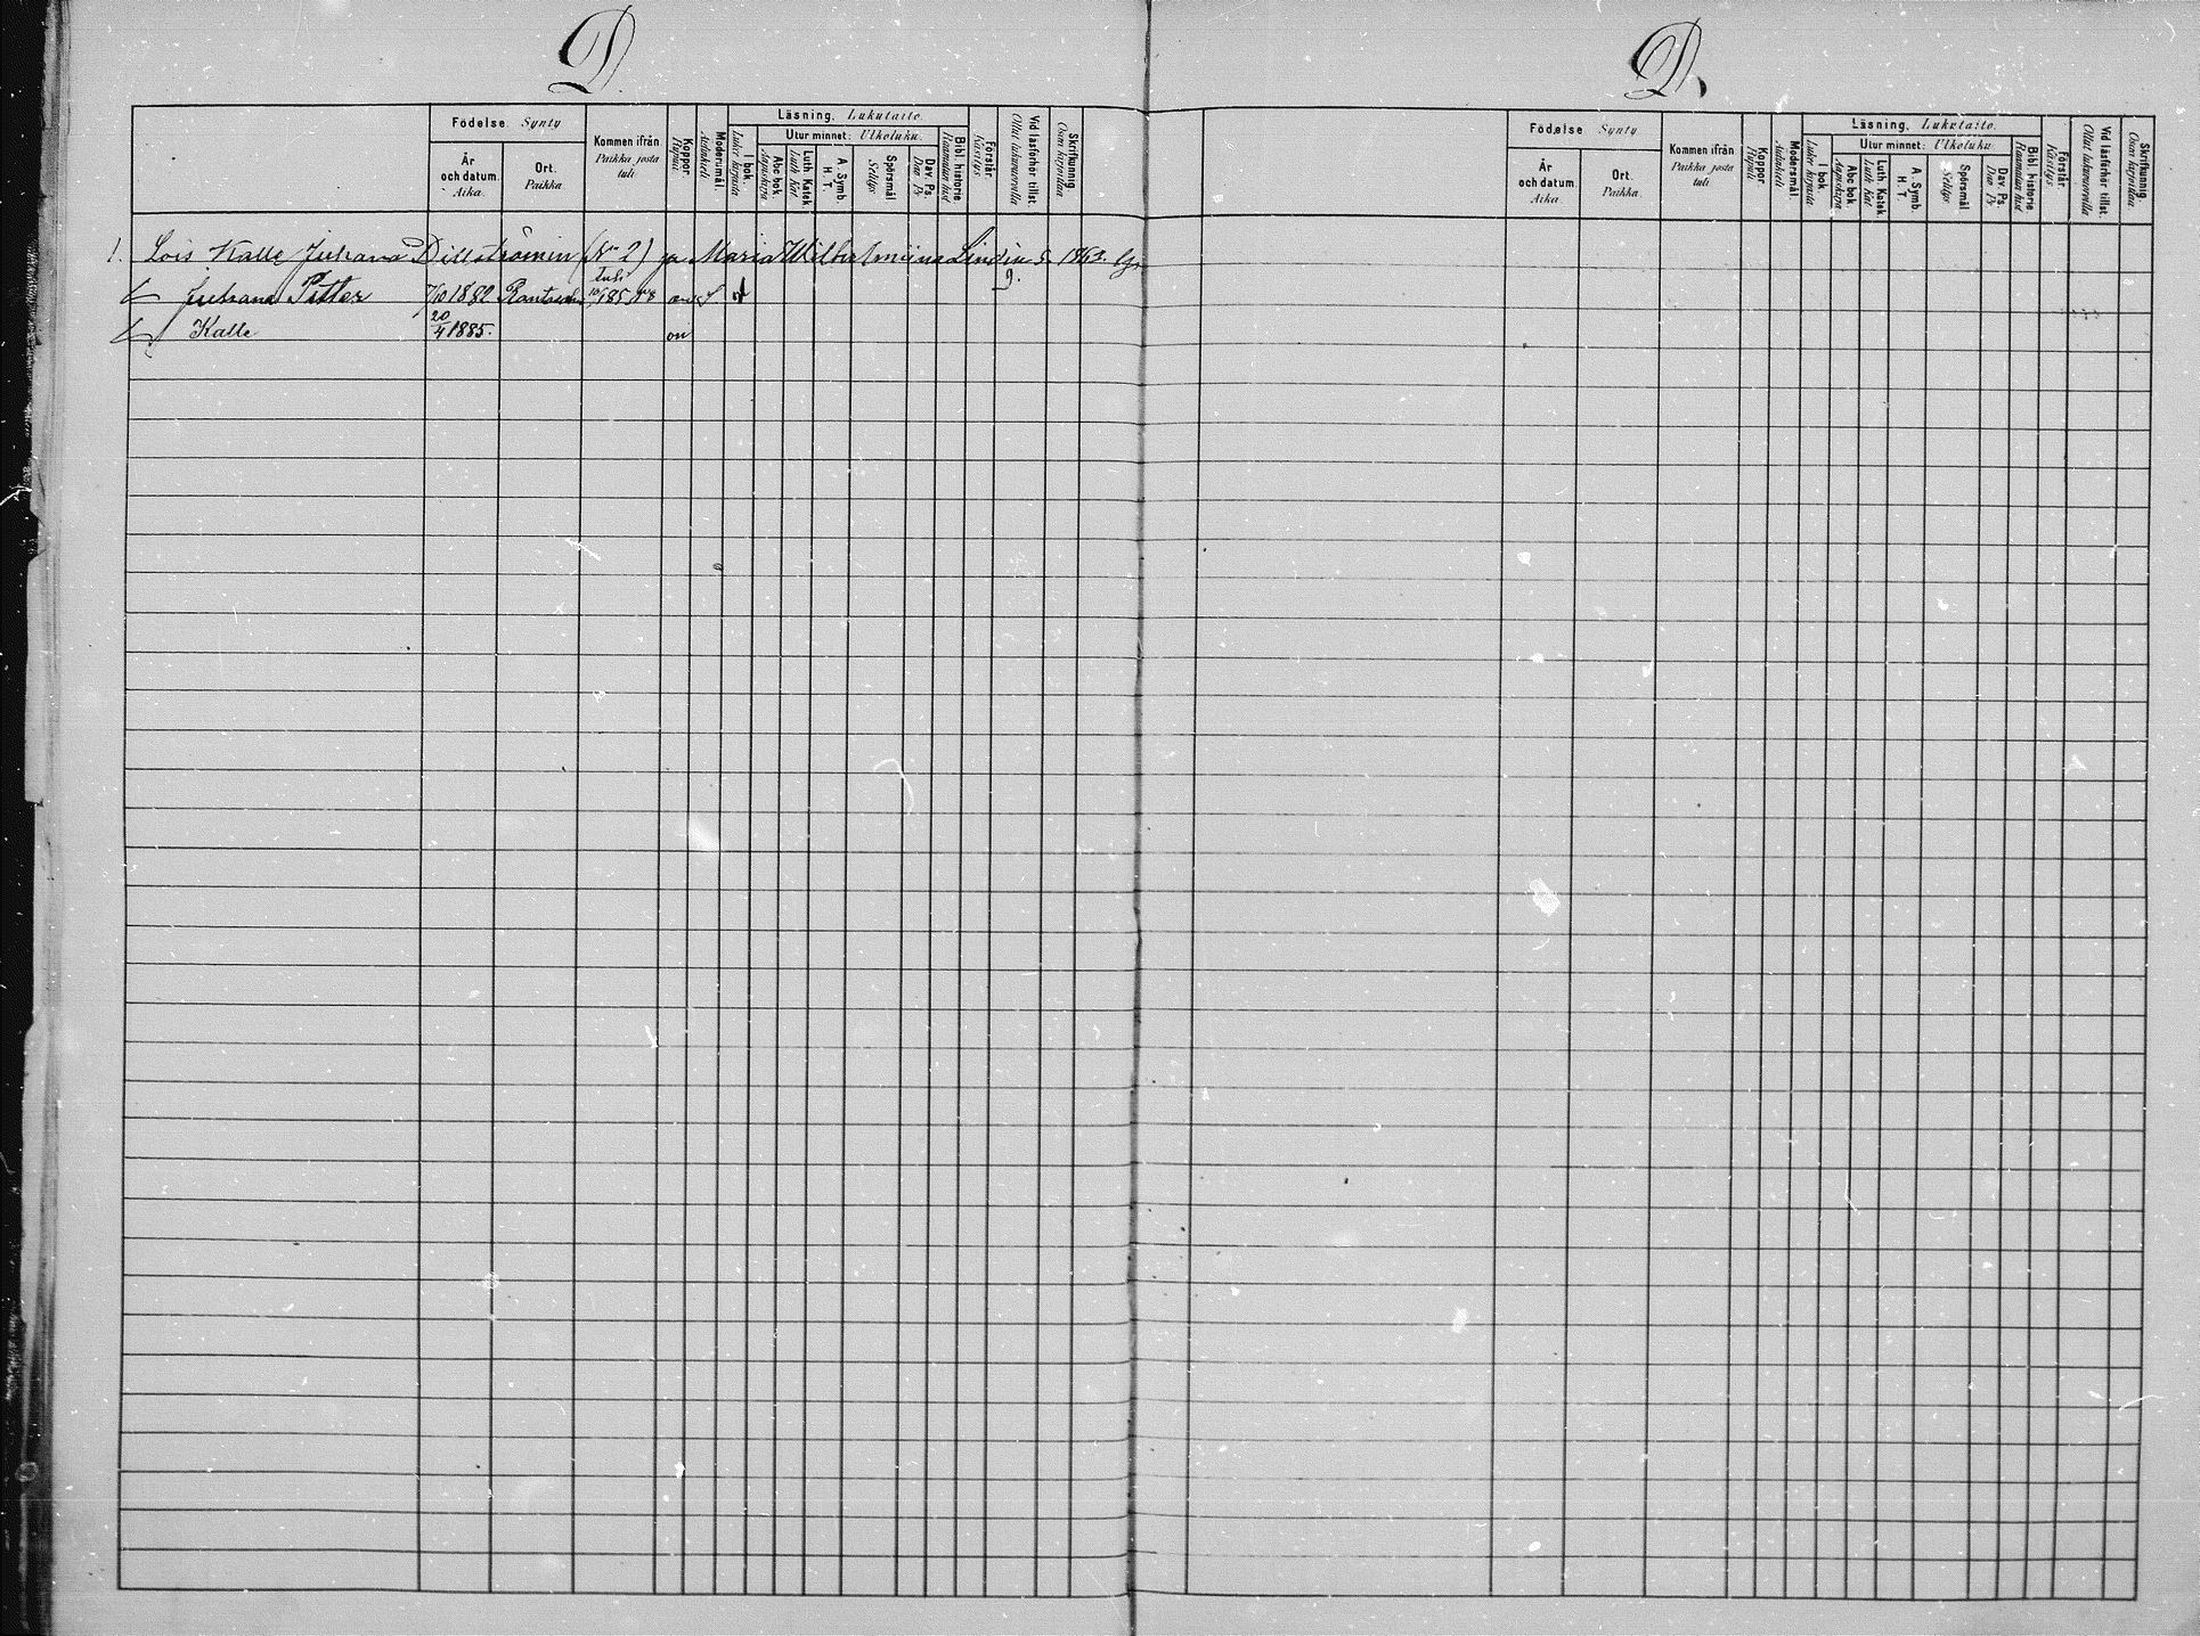 D.
Födelse. Synty
Kommen ifrån.
Paikka josta
tuli
Koppor.
Rupuli
Modersmål.
Äidinkieli
Läsning. Lukutaito.
Utur minnet: Ulkoluku.
År
och datum.
Aika.
Ort.
Paikka
I bok.
Lukee kirjasta
Abc bok.
Aapiskirja
Luth. Katek
Luth. Kat
A. Symb.
H. T.
Spörsmål
Selitys
Dav. Ps.
Dav. Ps
Bibl. historie
Raamatun hist
Förstår.
Käsitys
Vid läsförhör tillst.
Ollut lukuvuorolla
Skrifkunnig
Osaa kirjoittaa
1. Lois Kalle Juhana Dillströmin (No 2) ja Maria Wilhelmiina Lindin s. 1863.
tuli
Juhana Petter 7/10 1882 Rantsal 10/1 85
Kalle 20/4 1885. on
D.
Födelse Synty
Kommen ifrån
Paikka josta
tuli
Koppor
Rupuli
Modersmål.
Äidinkieli
Läsning. Lukutaito.
Utur minnet: Ulkoluku
År
och datum.
Aika.
Ort.
Paikka.
I bok
Lukee kirjasta
Abc bok
Aapiskirja
Luth. Katek.
Luth. Kat
A. Symb.
H. T.
Spörsmål
Selitys
Dav. Ps.
Dav. Ps
Bibl. historie
Raamatun hist
Förstår.
Käsitys
Vid läsförhör tillst.
Ollut lukuvuorolla
Skrifkunnig
Osaa kirjoittaa